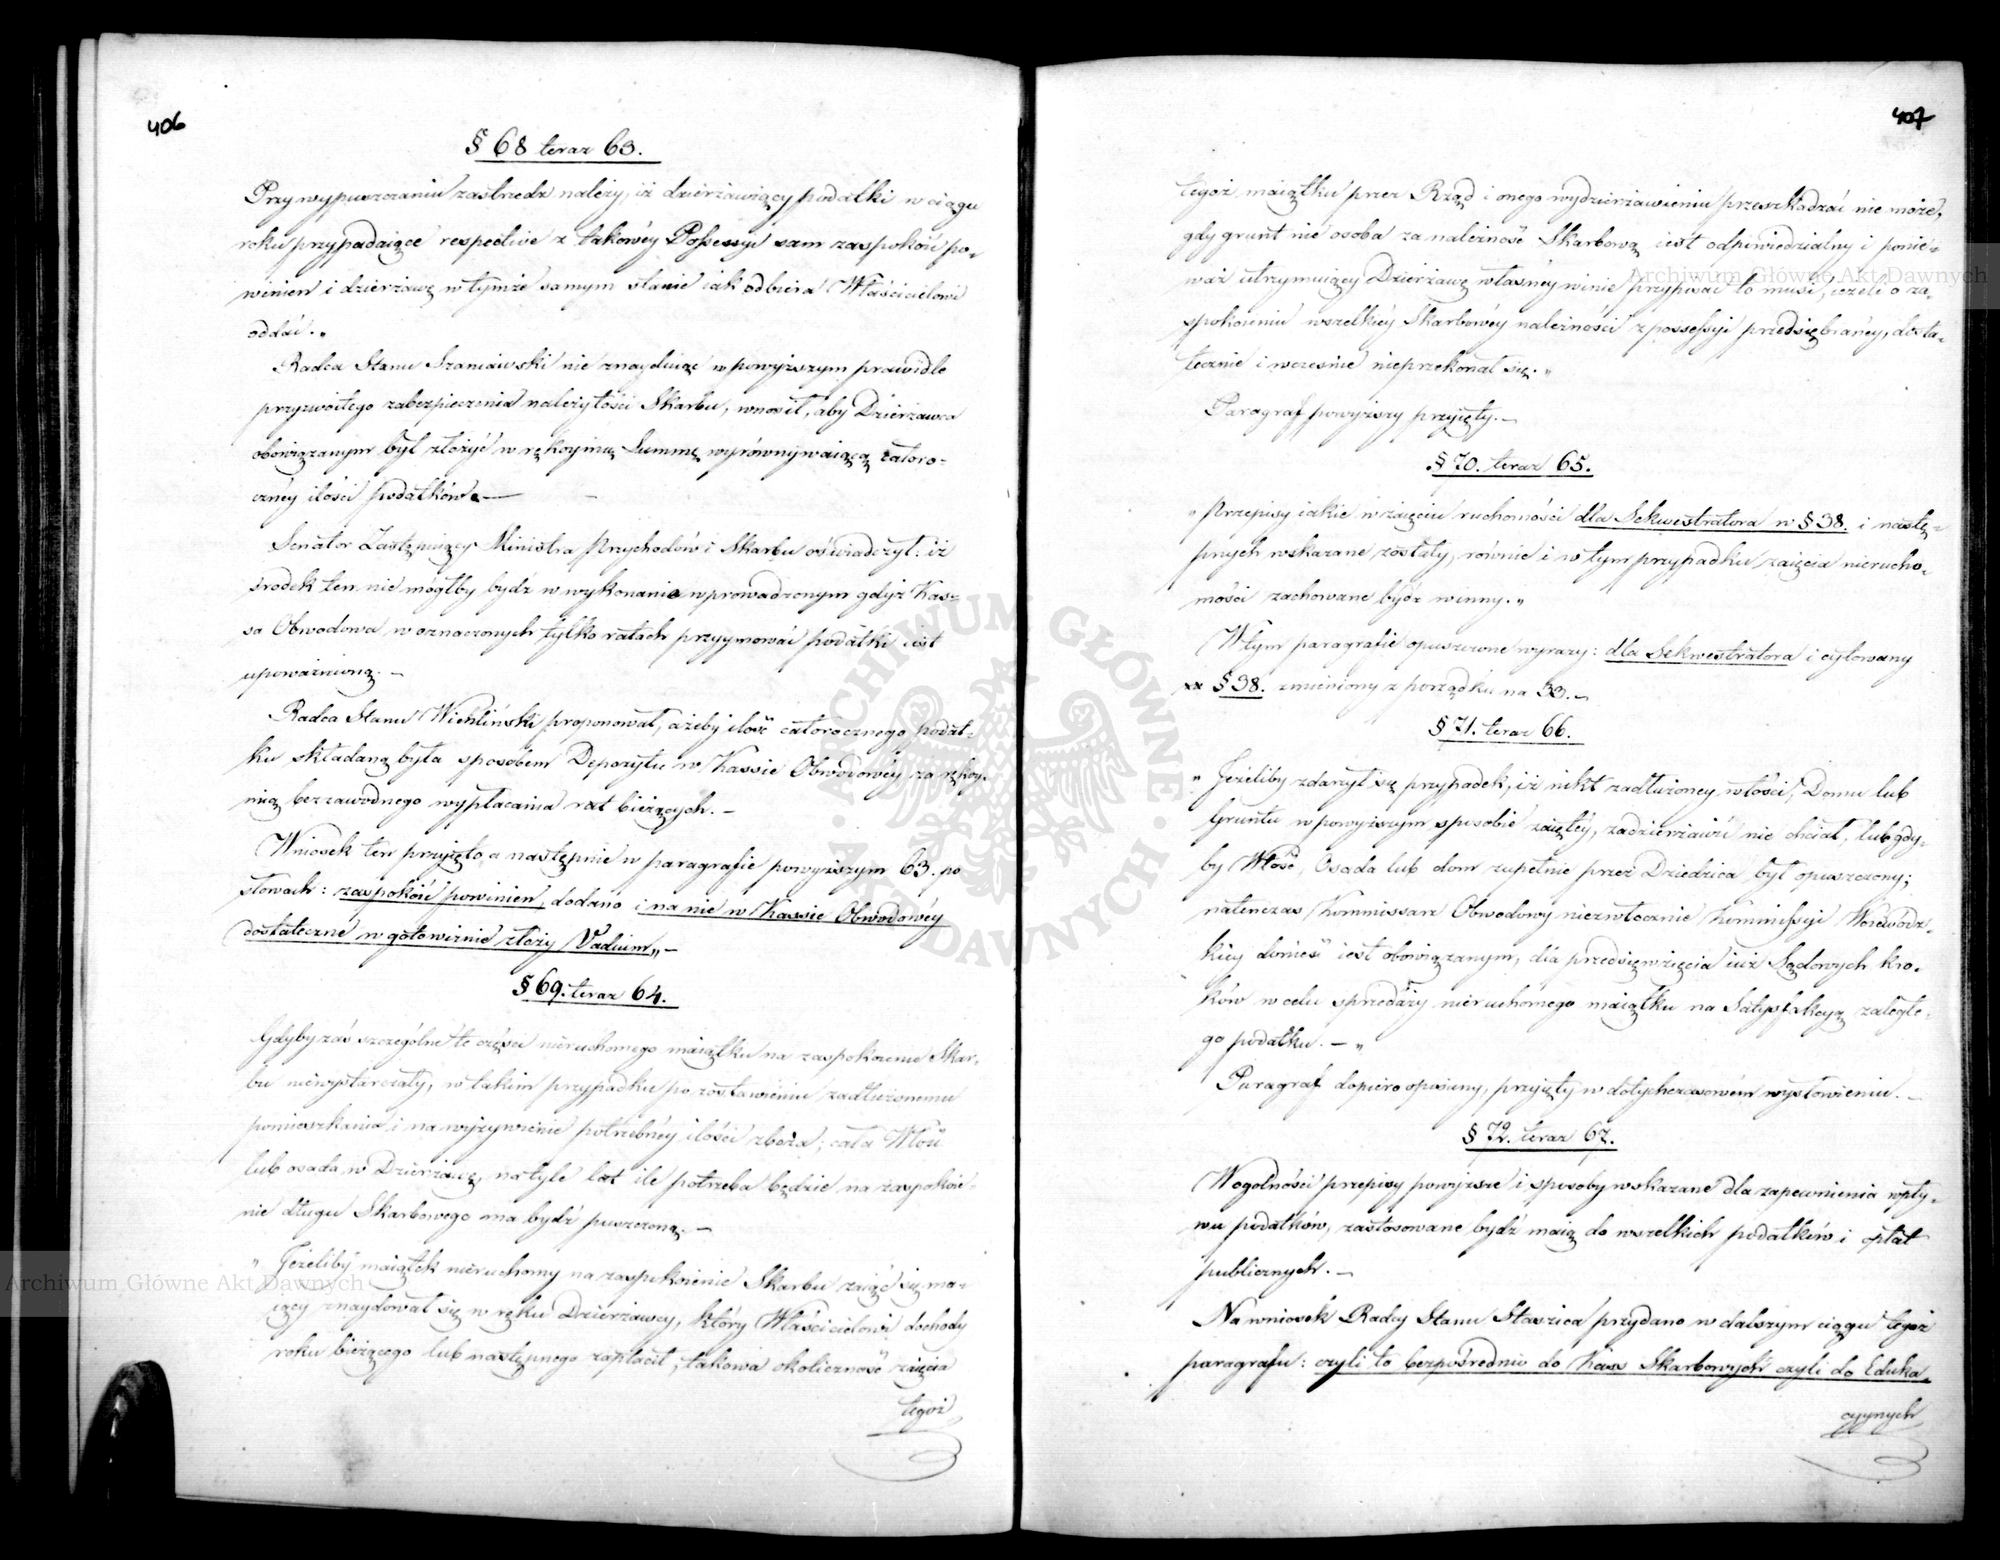 406
§ 68 teraz 63.
Przy wypuszczaniu zastrzedz należy, iż dzierżawiący podatki w ciągu
roku przypadaiące respective z takowéy Possessyi sam zaspokoić po-
winien i dzierżawę w tymże samym stanie iak odbiera Właścicielowi
oddać.„
Radca Stanu Szaniawski nie znayduiąc w powyższym prawidle
przyzwoitego zabezpieczenia należytości Skarbu, wnosił, aby Dzierżawca
obowiązanym był złożyć w rękoymię Summę wyrównywaiącą całoro-
cznéy ilości podatków.—
Senator Zastępuiący Ministra Przychodów i Skarbu oświadczył: iż
środek ten nie mógłby bydź w wykonanie wprowadzonym gdyż Kas-
sa Obwodowa w oznaczonych tylko ratach przyymować podatki iest
upoważnioną.—
Radca Stanu Wichliński proponował, ażeby ilość całorocznego podat-
ku składaną była sposobem Depozytu w Kassie Obwodowéy za rękoy-
mią bezzawodnego wypłacania rat bieżących.—
Wniosek ten przyięto, a następnie w paragrafie powyższym 63. po
słowach: zaspokoić powinien, dodano i na nie w Kassie Obwodowéy
dostateczne w gotowiznie złoży Vadium„—
§ 69. teraz 64.
Gdyby zaś szczególne te części nieruchomego maiątku na zaspokoienie Skar-
bu niewystarczały, w takim przypadku po zostawieniu zadłużonemu
pomieszkania i na wyżywienie potrzebnéy ilości zboża; cała Włość
lub osada w Dzierżawę, na tyle lat ile potrzeba będzie na zaspokoie-
nie długu Skarbowego ma bydź puszczoną.—
„ Jeżeliby maiątek nieruchomy na zaspokoienie Skarbu zaiąć się ma-
iący znaydował się w ręku Dzierżawcy, który Właścicielowi dochody
roku bieżącego lub następnego zapłacił, takowa okoliczność zaięcia
tegoż
407
tegoż maiątku przez Rząd i onego wydzierżawieniu przeszkadzać nie może,
gdy grunt nie osoba za należność Skarbową iest odpowiedzialny i ponie-
waż utrzymuiący Dzierżawę własnéy winie przypisać to musi, ieżeli o za-
spokoieniu wszelkiéy Skarbowéy należności z possessyi przedsiębranéy, dosta-
tecznie i wcześnie nieprzekonał się.„
Paragraf powyższy przyięty.—
§ 70. teraz 65.
„ Przepisy iakie w zaięciu ruchomości dla Sekwestratora w § 38. i nastę-
pnych wskazane zostały, równie i w tym przypadku zaięcia nierucho-
mości zachowane bydź winny.„
W tym paragrafie opuszczone wyrazy: dla Sekwestratora i cytowany
§ 38. zmieniony z porządku na 33.—
§ 71. teraz 66.
„ Jeżeliby zdarzył się przypadek, iż nikt zadłużoney włości, Domu lub
Gruntu w powyższym sposobie zaiętéy, zadzierżawić nie chciał, lub gdy-
by Włość, Osada lub dom zupełnie przez Dziedzica był opuszczony;
natenczas Kommissarz Obwodowy niezwłocznie Kommissyi Woiewódz-
kiey donieść iest obowiązanym, dla przedsięwzięcia iuż Sądowych kro-
ków w celu sprzedaży nieruchomego maiątku na Satysfakcyą zaległe-
go podatku.—„
Paragraf dopiero opisany, przyięty w dotychczasowém wysłowieniu.—
§ 72. teraz 67.
W ogólności przepisy powyższe i sposoby wskazane dla zapewnienia wpły-
wu podatków, zastosowane bydź maią do wszelkich podatków i opłat
publicznych.—
Na wniosek Radcy Stanu Staszica przydano w dalszym ciągu tegoż
paragrafu: czyli to bezpośrednio do Kass Skarbowych czyli do Eduka-
cyynych
Archiwum Główne Akt Dawnych
Archiwum Główne Akt Dawnych
ARCHIWUM GŁÓWNE · AKT DAWNYCH ·